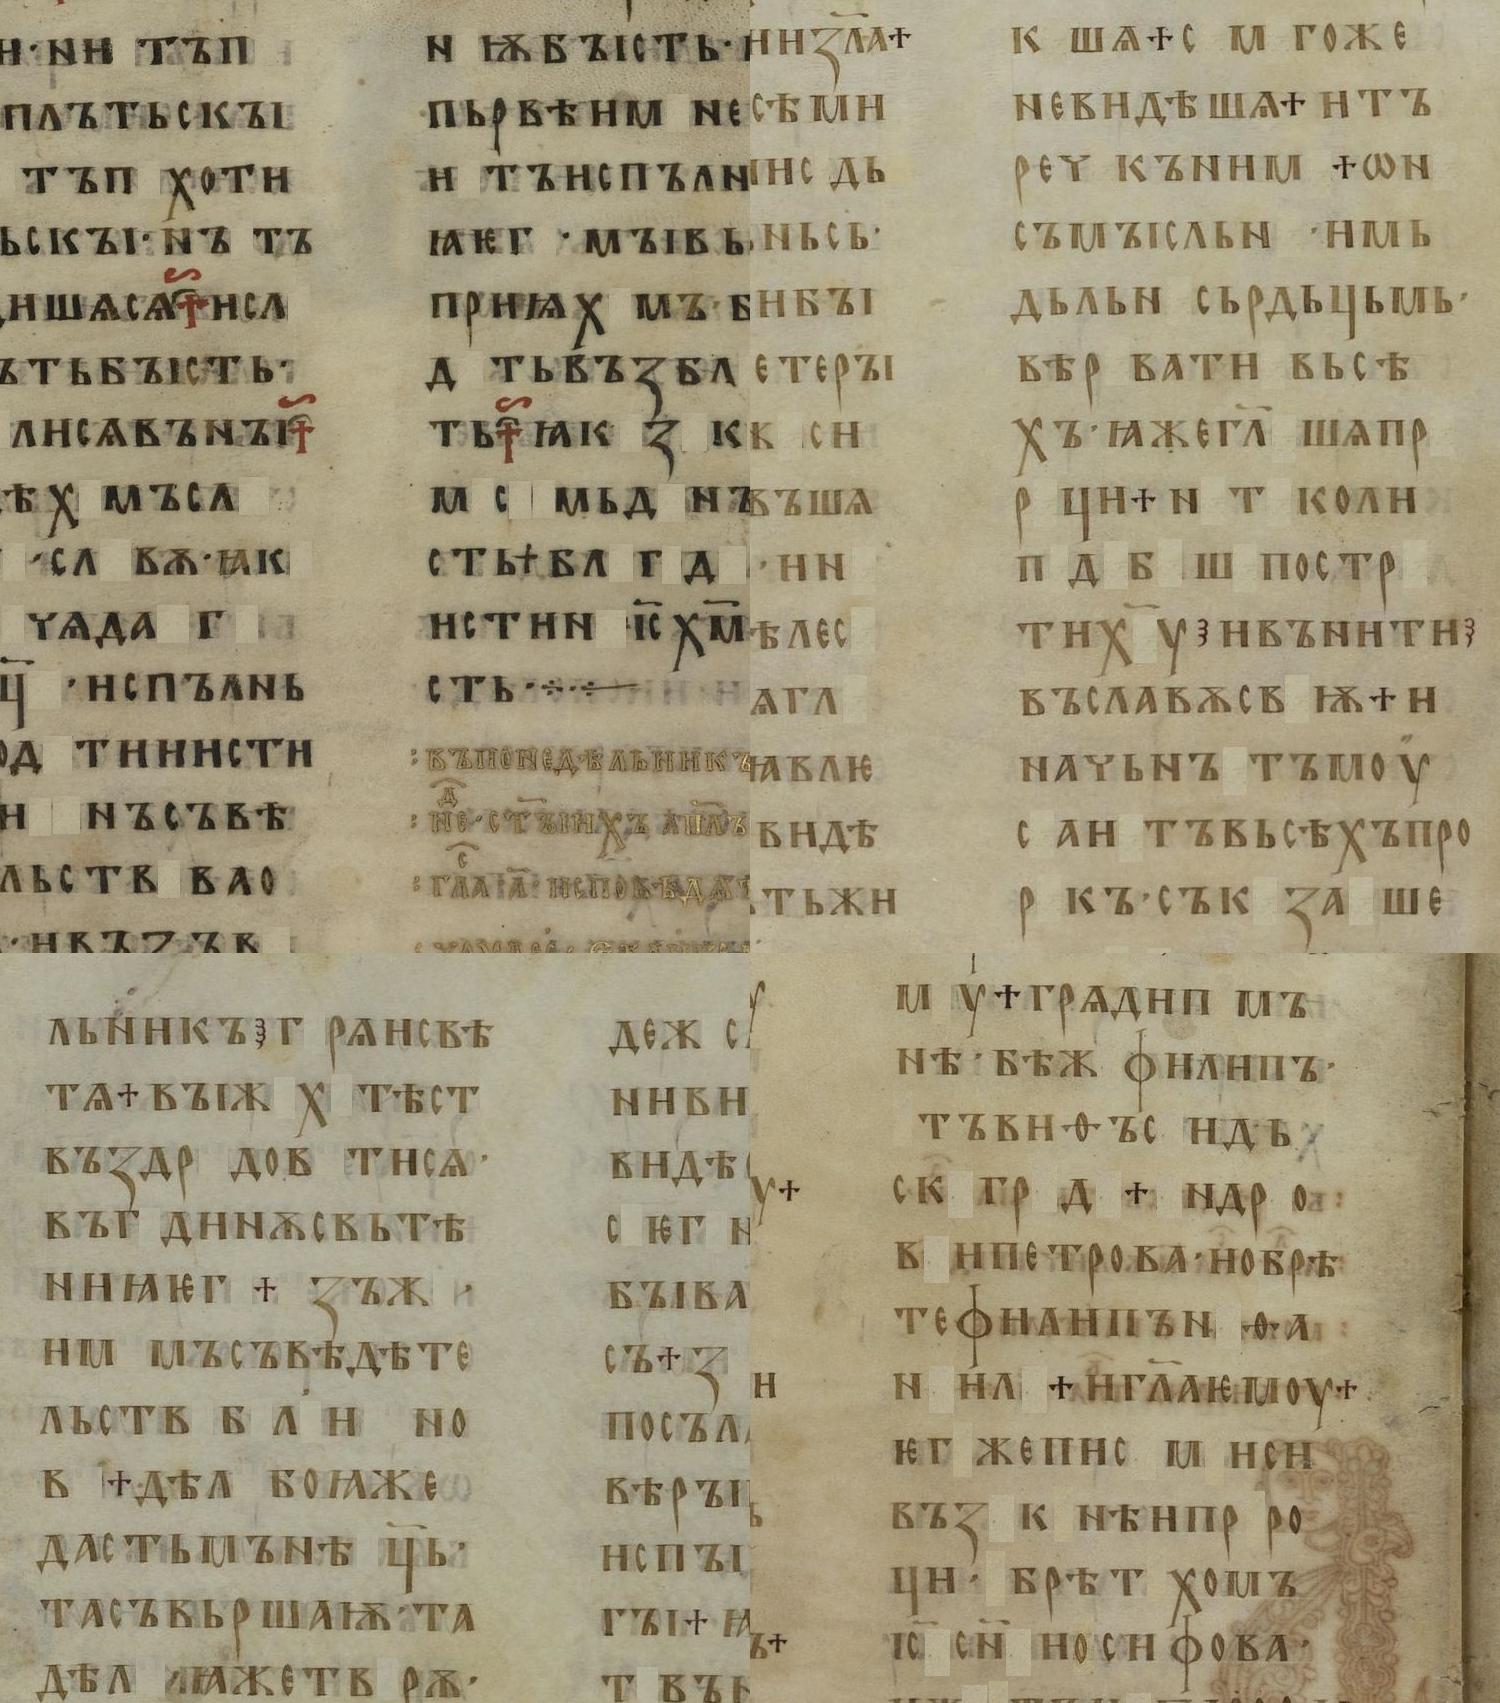 н·нн тъп
плътьскꙑ
тъп хотн
ьскꙑ·нъ тъ
ншѧсѧ нсл
ътьбꙑсть·
лнсѧвънꙑ
ѣх мъсл
·сл вѫ·ꙗк
чѧда г
·нспълнь
од тнннстн
н нъсъвѣ
льств вао
н ѭбꙑсть·
пьрвѣнм не
н тънспълн
ꙗѥг ·мꙑвь
прнѩх мъ·б
д тьвъꙁбл
ть ꙗк ꙁ к
м с мьд нъ
сть+бл г д
нстнн іс хм
сть·
:въпонедѣльннкъ
:не·стꙑнхъ апⷧъ
:гла а· нсповѣдѧ
ннꙁла+
сѣмн
нс дь
ньсь·
нбꙑ
етерꙑ
к сн
въшѧ
·нн
ѣлес
ѧгл
ꙗвлю
вндѣ
тьжн
к шѧ+с м гоже
невндѣшѧ+нтъ
реч къннм +ѡн
съмꙑсльн ·нмь
дьльн сьрдьцьмь·
вѣр ватн вьсѣ
хъ·ꙗжегл шѧпр
р цн+н т колн
п д б ш постр
тнх у нвъннтн
въславѫсв ѭ+н
начьнъ тъмоу
с ан тъвьсѣхъпро
р къ·сък ꙁа ше
льннкъ г рѧнсвѣ
тѧ+вꙑж х тѣст
въꙁдр дов тнсѧ·
въг дннѫсвьтѣ
ннꙗѥг + ꙁъж ·
нм мъсъвѣдѣте
льств б л н но
в +дѣл боꙗже
дастьмънѣ ць·
тасъвьршаѭ·та
дѣл ꙗжетв рѫ·
деж с
ннвн
вндѣ
с ѥг н
бꙑва
съ+ꙁ
посъл
вѣрꙑ
нспꙑ
гꙑ+ꙗ
т въ
м у+грѧднп мъ
нѣ·бѣж фнлнпъ·
тъвнѳъс ндѣ
ск гр д + ндр о
в нпетрова·нобрѣ
тефнлнпън ѳа
н нл +нглаюмоу+
ѥг жепнс м нсн
въꙁ к нѣнпр ро
цн· брѣт хомъ
іс сн носнфова·